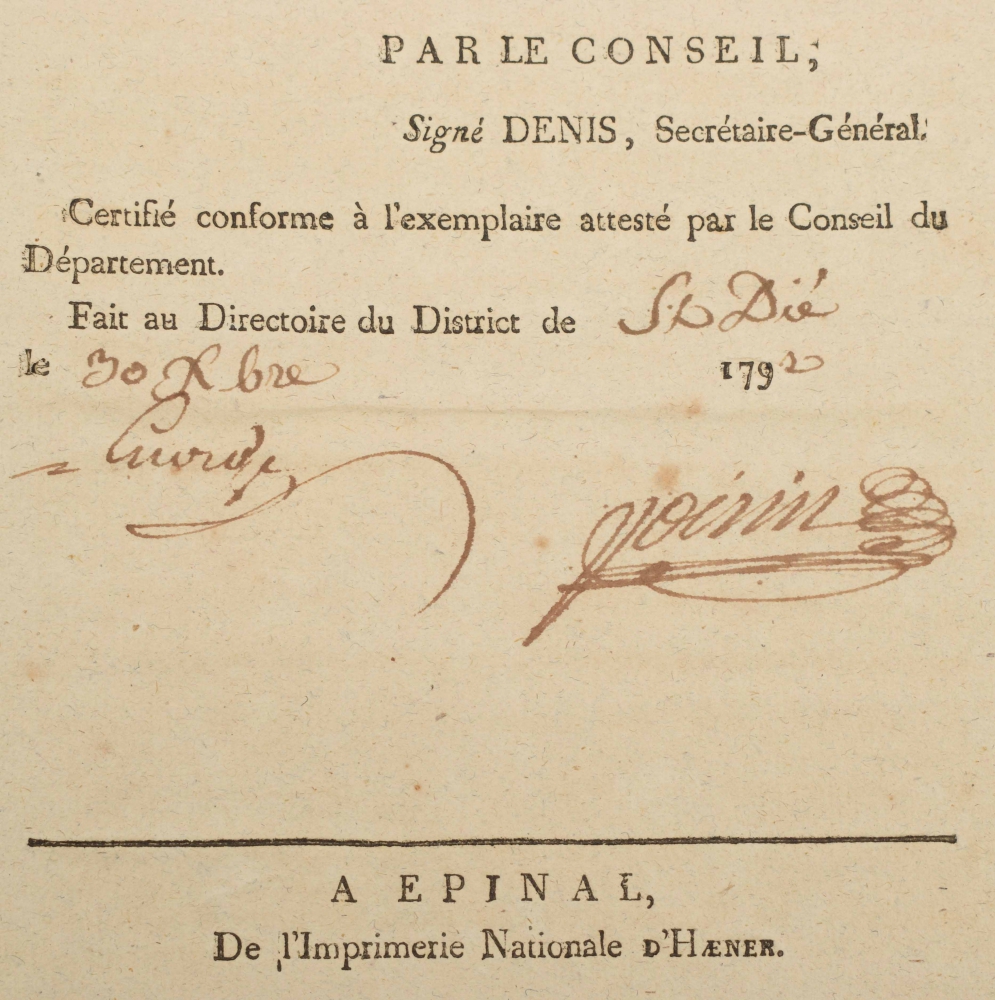 PAR LE CONSEIL;
Signé DENIS, Secrétaire-Général.
Certifié conforme à l'exemplaire attesté par le Conseil du
Département.
Fait au Directoire du District de St Dié
le 30 Xbre 1792
poirin
A EPINAL,
De l'Imprimerie Nationale D'HÆNER.